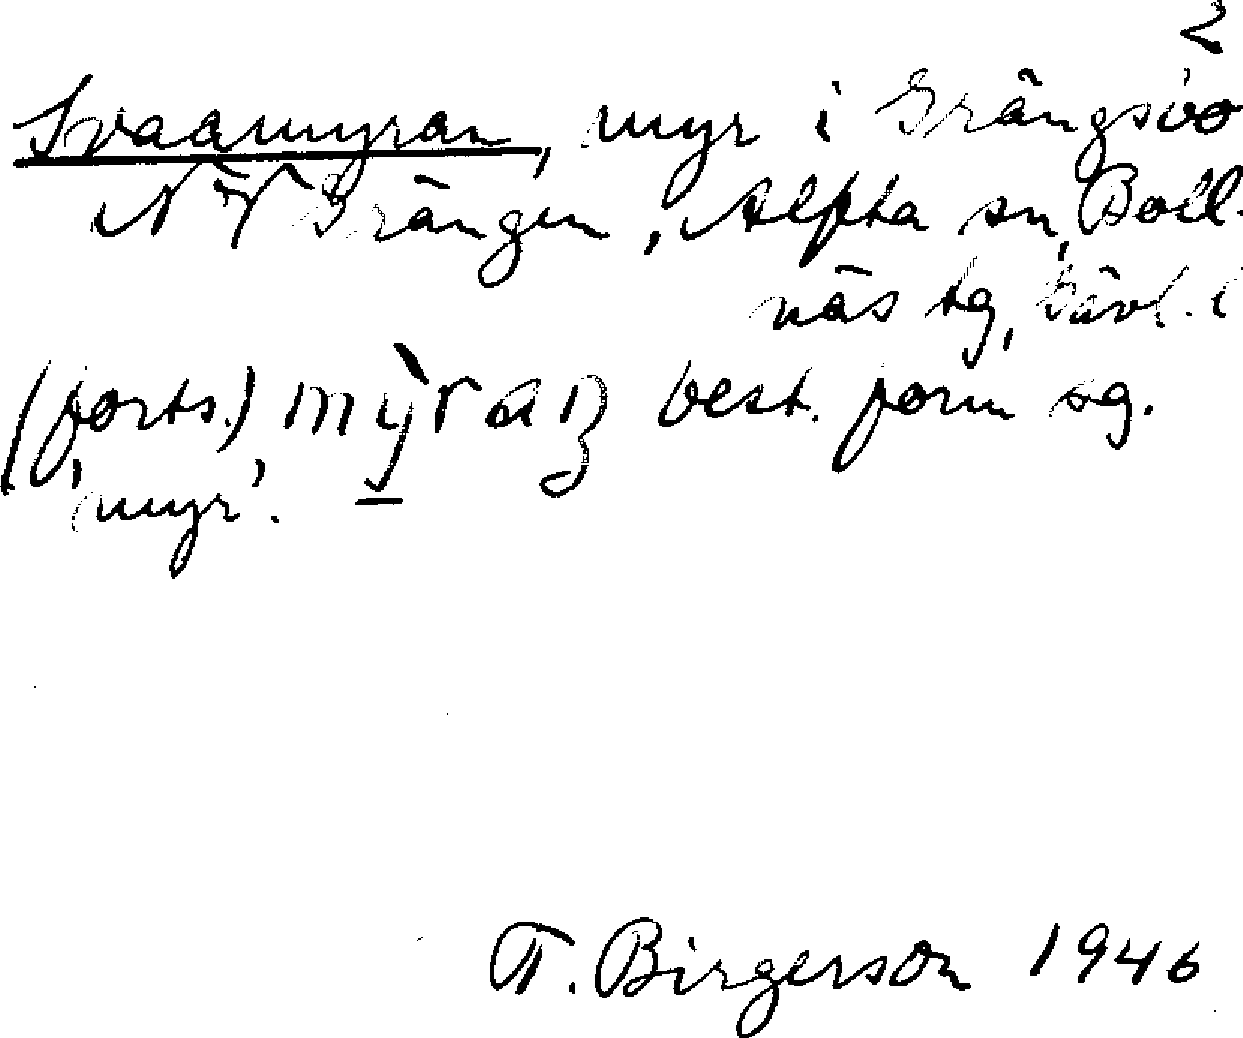 2
Svaamyran, myr i Grängsbo
NV Grängen, Alfta sn, Boll-
näs tg, Gävl. l
(forts.) mỳran best. form sg.
'myr'.
T. Birgerson 1946